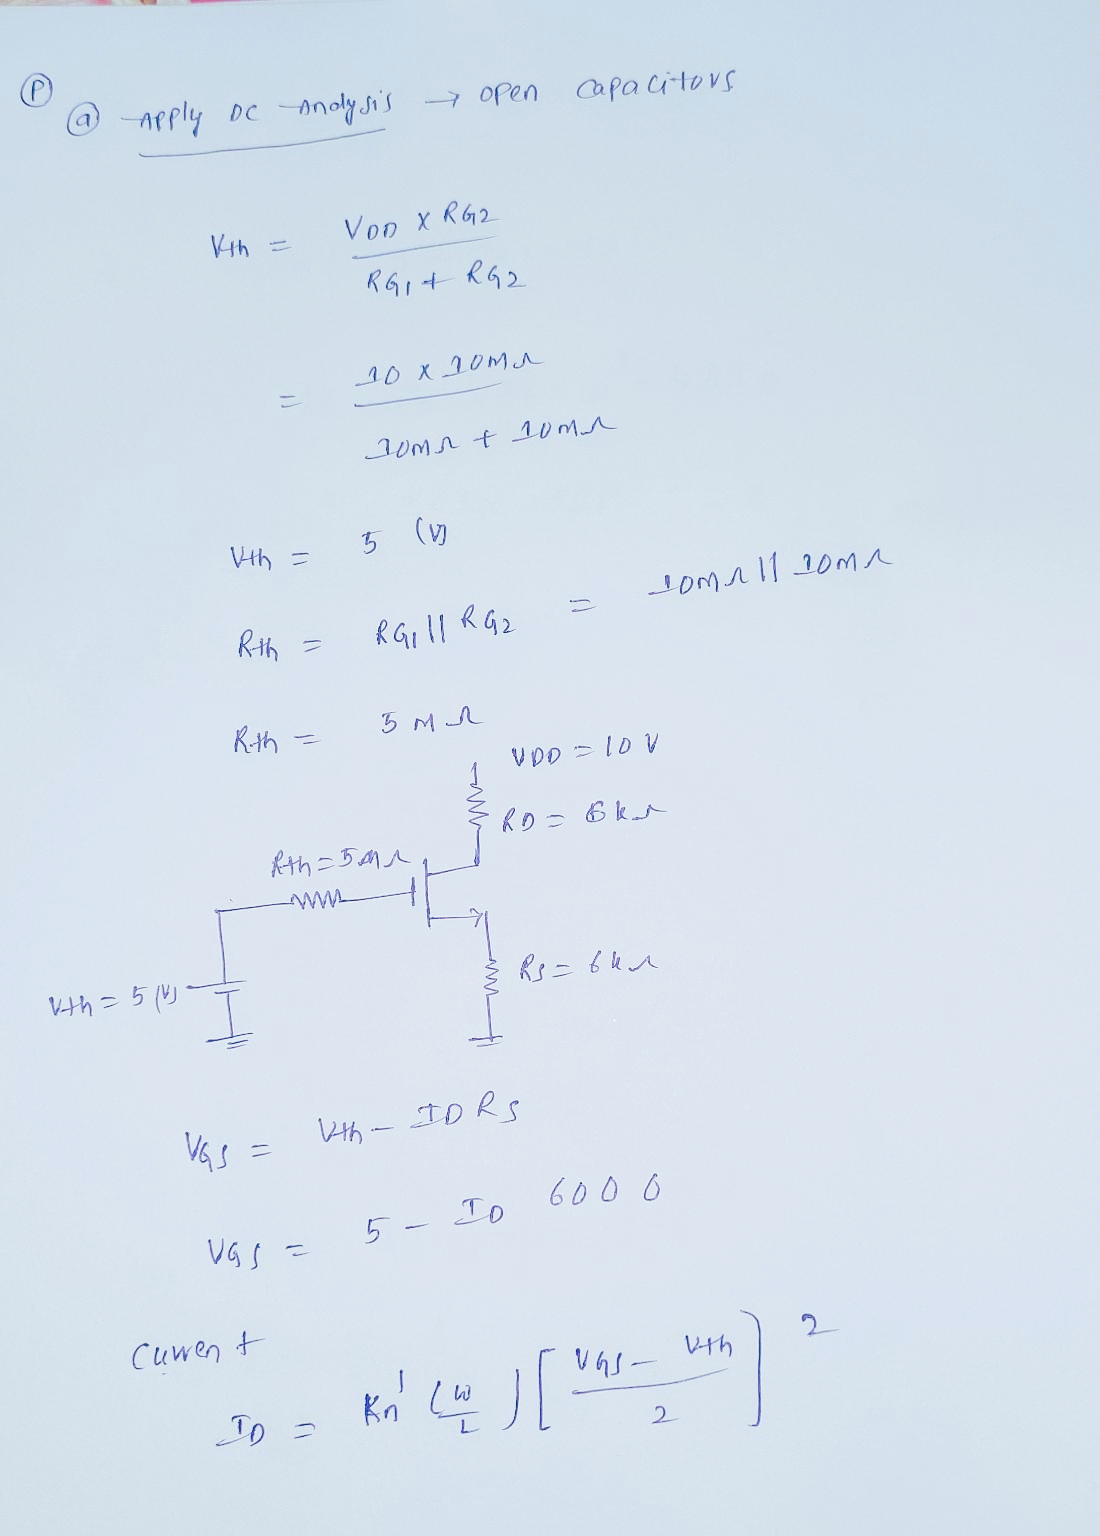 (P)
(a) Apply DC Analysis → open capacitors
Vth = VDD X RG2 / RG1 + RG2
= 10 x 10MΩ / 10MΩ + 10MΩ
Vth = 5 (V)
Rth = RG1 || RG2 = 10MΩ || 10MΩ
Rth = 5 MΩ
VDD = 10 V
RD = 6kΩ
Rth = 5MΩ
RS = 6kΩ
Vth = 5 (V)
VGS = Vth - ID RS
VGS = 5 - ID 6000
Current
ID = Kn' (W/L) [VGS - Vth / 2]²